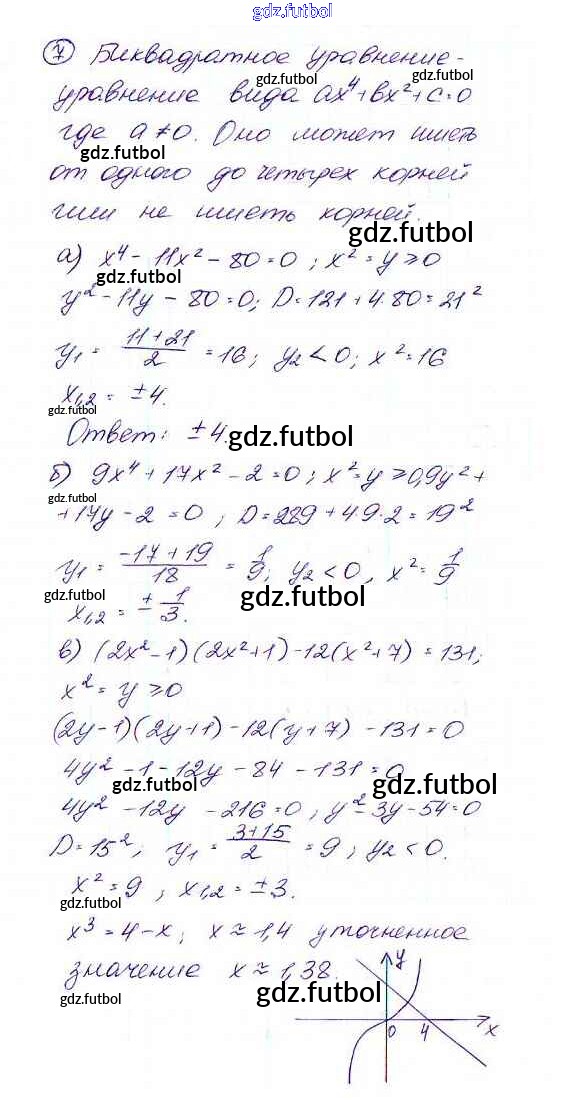 gdz.futbol
7 Биквадратное уравнение -
gdz.futbol gdz.futbol
уравнение вида ax⁴+bx²+c=0
где a≠0. Оно может иметь
gdz.futbol
от одного до четырех корней
или не иметь корней.
gdz.futbol
а) x⁴ - 11x² - 80 = 0 ; x² = y ≥ 0
gdz.futbol
y² - 11y - 80 = 0; D = 121 + 4·80 = 21²
y₁ = (11+21)/2 = 16; y₂ < 0; x² = 16
x₁,₂ = ±4.
gdz.futbol
Ответ: ±4.
gdz.futbol
б) 9x⁴ + 17x² - 2 = 0 ; x² = y ≥ 0, 9y² +
gdz.futbol
+ 17y - 2 = 0 ; D = 289 + 4·9·2 = 19²
y₁ = (-17+19)/18 = 1/9; y₂ < 0, x² = 1/9
gdz.futbol gdz.futbol
x₁,₂ = ± 1/3.
в) (2x²-1)(2x²+1) - 12(x²+7) = 131;
x² = y ≥ 0
(2y-1)(2y+1) - 12(y+7) - 131 = 0
4y² - 1 - 12y - 84 - 131 = 0
gdz.futbol gdz.futbol
4y² - 12y - 216 = 0 ; y² - 3y - 54 = 0
D = 15²; y₁ = (3+15)/2 = 9 ; y₂ < 0.
x² = 9 , x₁,₂ = ±3.
gdz.futbol
x³ = 4 - x; x ≈ 1,4 уточненное
значение x ≈ 1,38.
gdz.futbol gdz.futbol
y
0 4 x